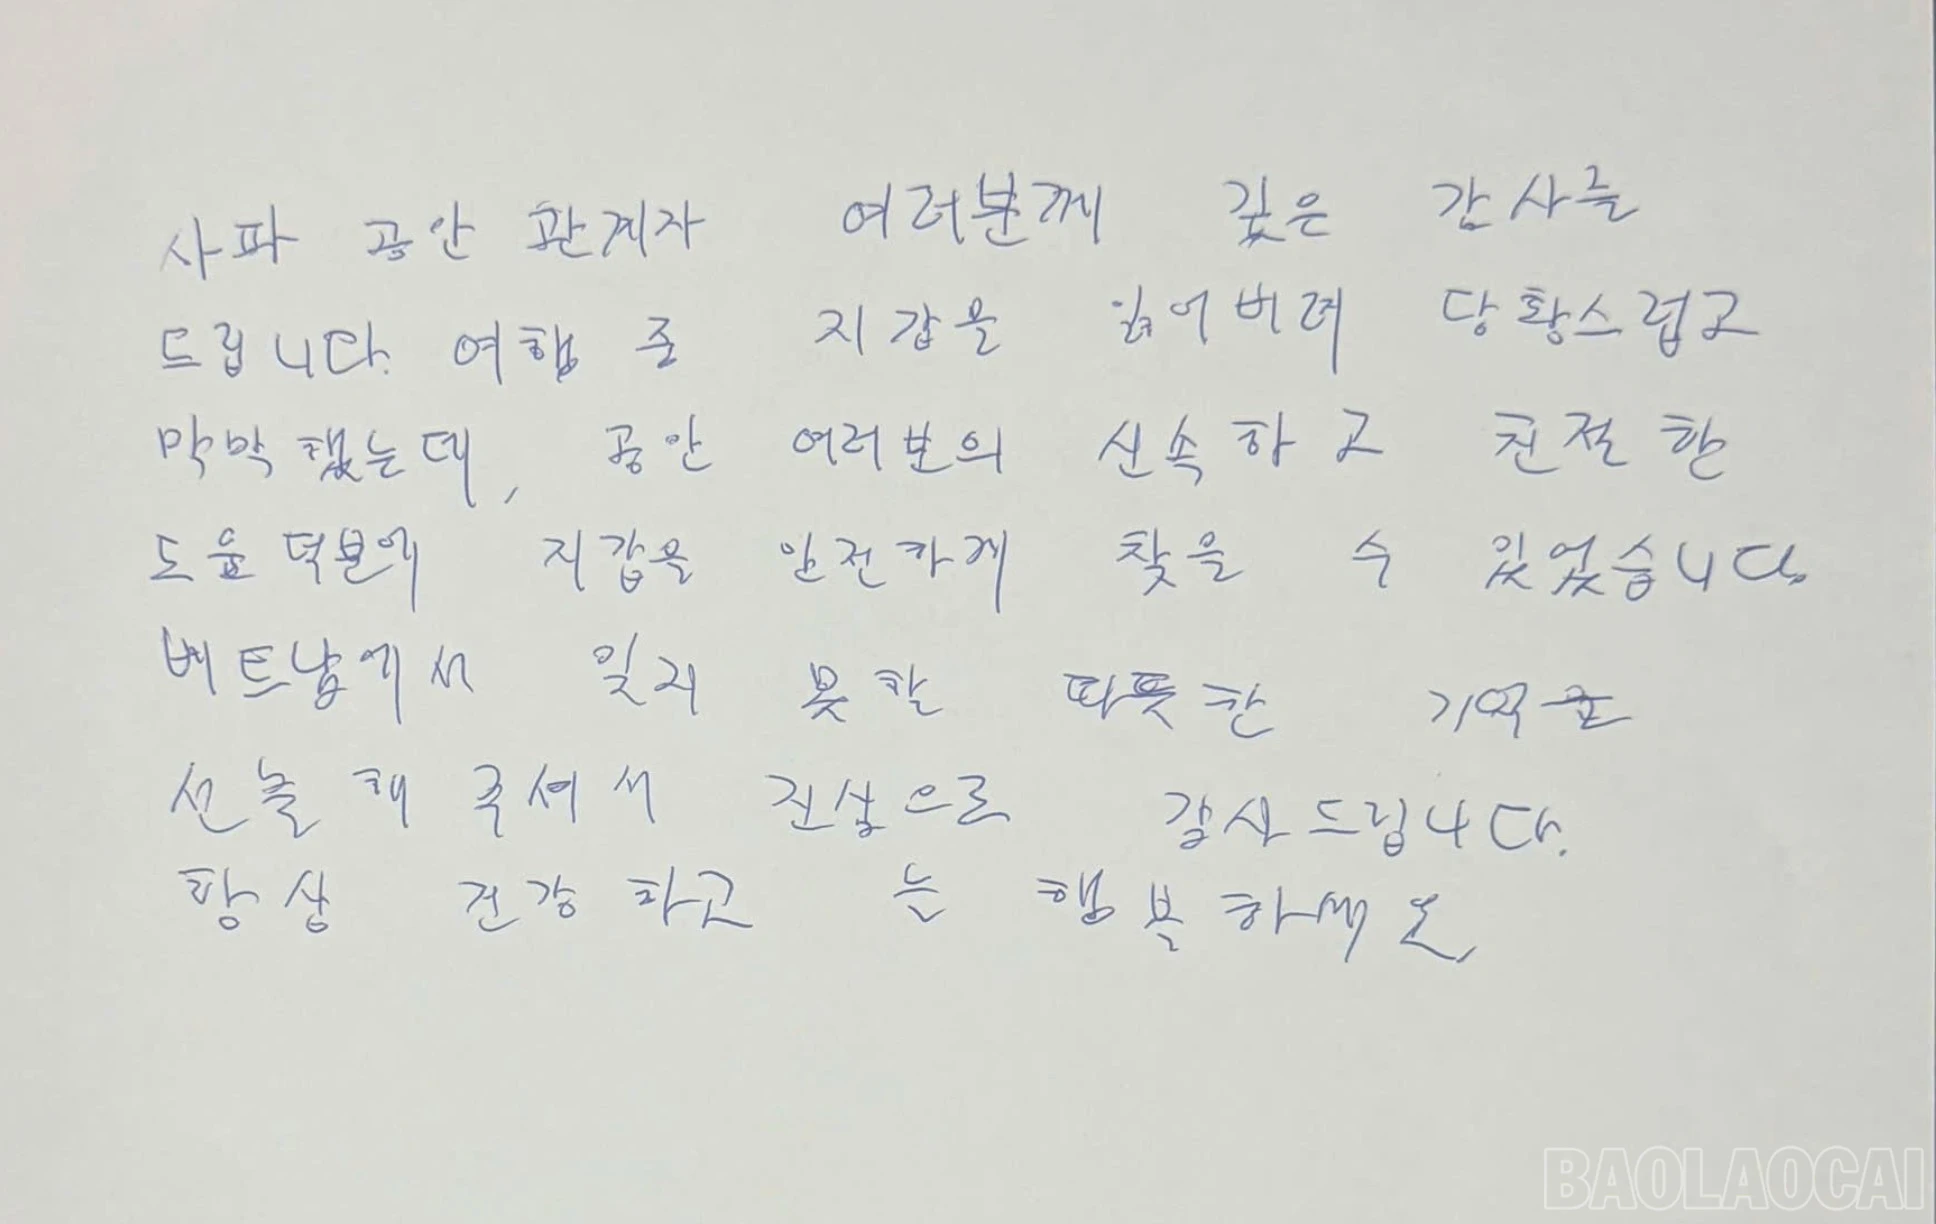 사파 공안 관계자 여러분께 깊은 감사를
드립니다. 여행 중 지갑을 잃어버려 당황스럽고
막막했는데, 공안 여러분의 신속하고 친절한
도움 덕분에 지갑을 안전하게 찾을 수 있었습니다.
베트남에서 잊지 못할 따뜻한 기억을
선물해 주셔서 진심으로 감사드립니다.
항상 건강하고 늘 행복하세요
BAOLAOCAI